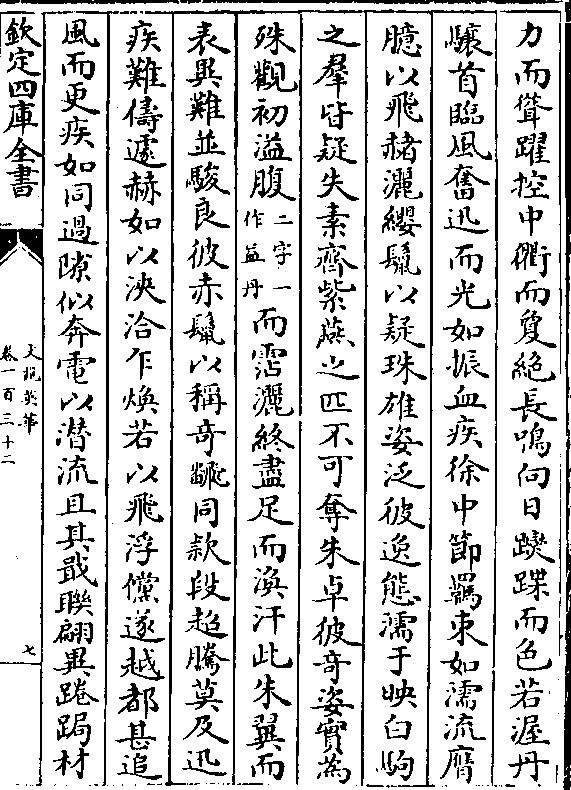 力而聳躍控中衢而敻絶長鳴向日躞蹀而色若渥丹
驤首臨風奮迅而光如振血疾徐中節羈束如濡流膺
臆以飛赭灑纓鬛以疑珠雄姿泛彼逸態濡于映白駒
之羣皆疑失素齊紫燕之匹不可奪朱卓彼奇姿實為
殊觀初溢腹二字一作益丹而霑灑終盡足而渙汗此朱翼而
表異難並駿良彼赤鬛以稱奇同款段超騰莫及迅
疾難儔遽赫如以泱洽乍煥若以飛浮儻遂越都甚追
風而更疾如同過隙似奔電以潜流且其戢聨翩異踡跼材
欽定四庫全書
文苑英華
卷一百三十二
七